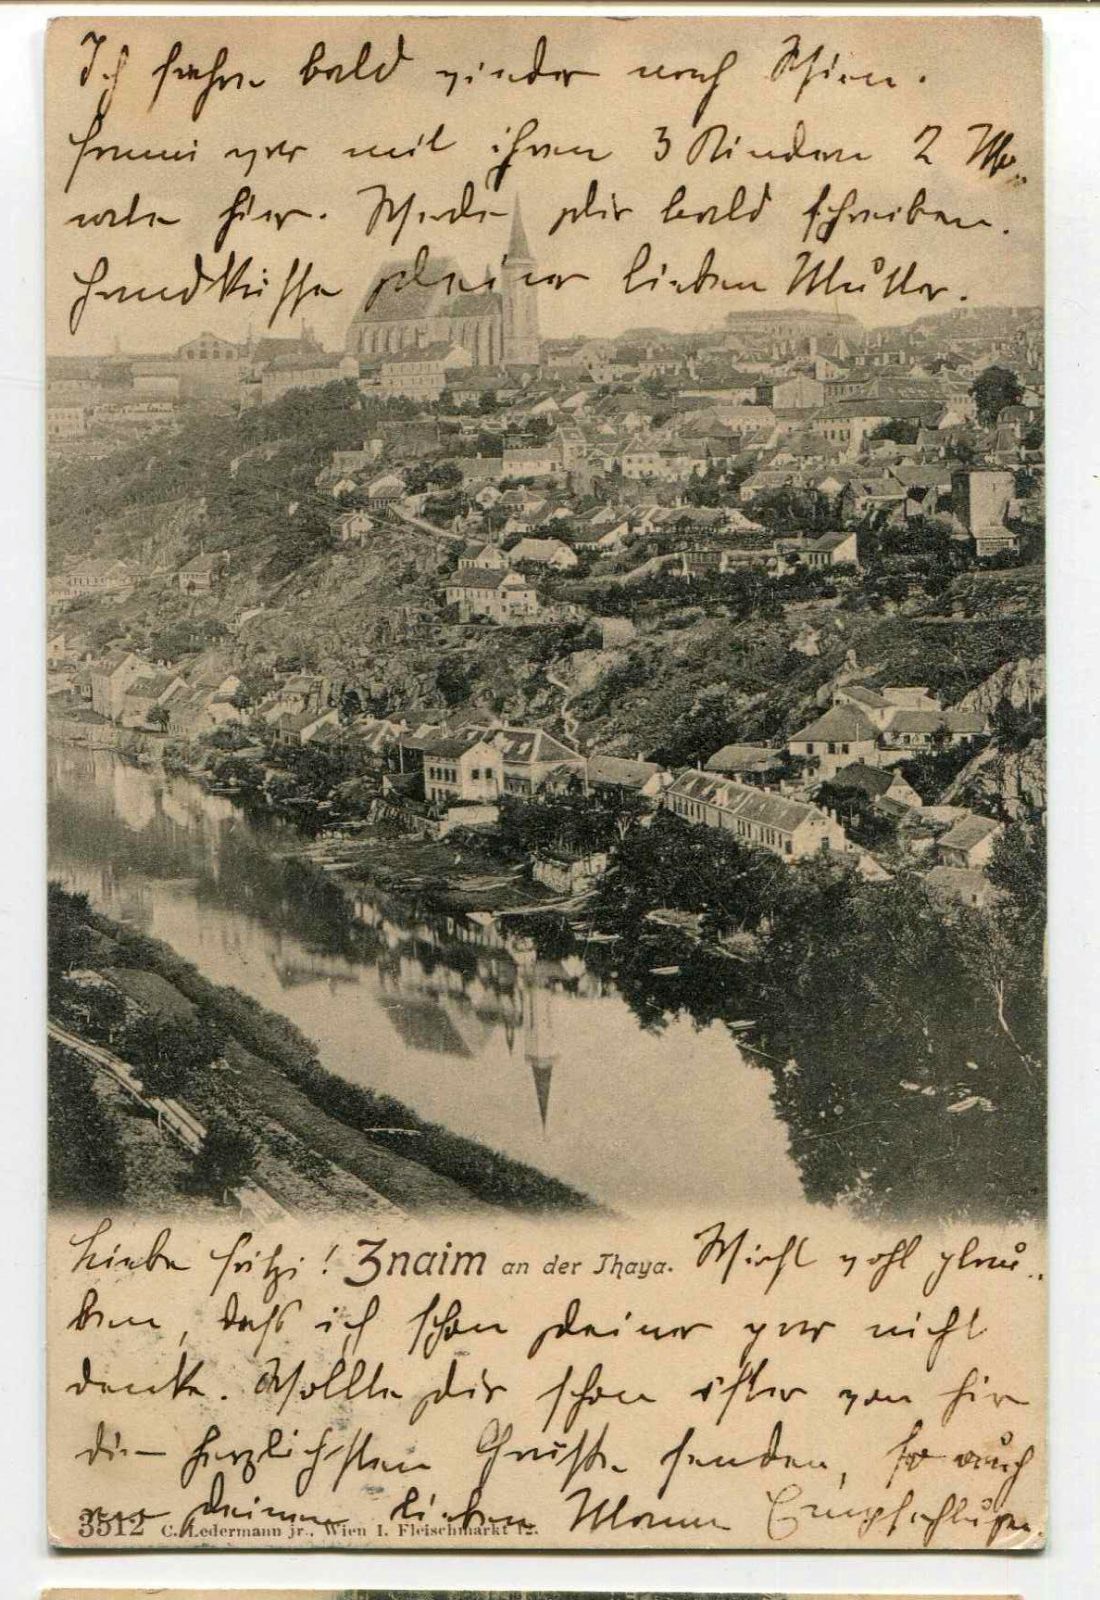 Ich fahre bald wieder nach Wien.
Fanni war mit ihren 3 Kindern 2 Mo-
nate hier. Werde dir bald schreiben.
Handküsse deiner lieben Mutter.
Liebe Fritzi! Znaim an der Thaya. Wirst wohl glau-
ben, daß ich schon deiner gar nicht
denke. Wollte dir schon öfter von hier
die herzlichsten Grüße senden, so auch
deinem lieben Mann Empfehlungen.
3512 C. Ledermann jr., Wien I. Fleischmarkt 12.